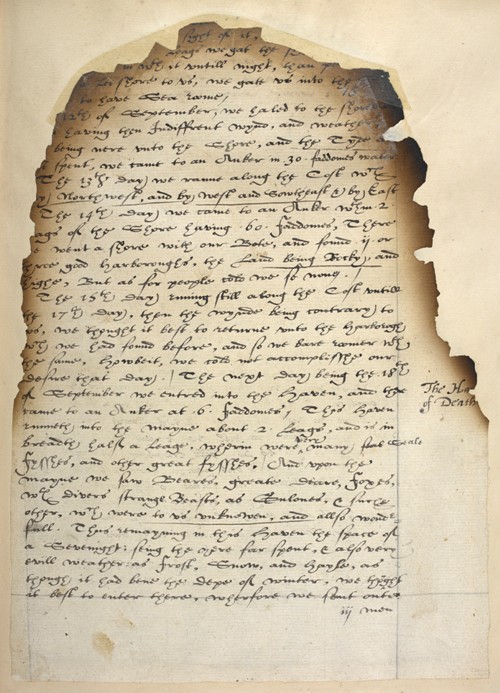 sight of it,
leags we gat the
in wch it vntill night, than
Lee shore to vs, we gate vs into the
to have Sea rome,
of September, we haled to the shore
having then Indiffrent wynd, and weather
being nere vnto the Shore, and the Tyde
spent, we came to an Anker in 30. faddomes water
The 13th day we ranne along the Cost wch
Northwest, and by west and Sowtheast & by East
The 14th day we came to an Anker wthin 2.
ags of the Shore having .60. faddomes, There
went a shore with our Bote, and found ij or
three good Harboroughs, the Land being Rocky, and
highe, But as for people cold we se none. /
The 15th day runing still along the Cost vntill
the 17th day, then the wynde being contrary to
vs, we thought it best to returne vnto the Harborogh
wch we had found before, and so we bare roomer wth
the same, howbeit, we cold not accomplisshe our
desire that day. / The next day being the .18th
of September we entred into the Haven, and there
came to an Anker at .6. faddomes, This Haven
runneth into the mayne about 2. Leags, and is in
breadth halfe a Leage, wherin were very many seale
fysshes, and other great fysshes, And vpon the
mayne we saw Beares, greate deare, foxes,
wth divers strange Beasts, as Gulones, & suche
other, wch were to vs vnknowen, and allso wonder-
full. Thus remayning in this Haven the space of
a Sevenight, seing the yere far spent, & also very
evill weather, as frost, Snow, and hayle, as
though it had bene the depe of winter, we thought
it best to winter there, wherfore we sent out
iij men
The Ha
of Death